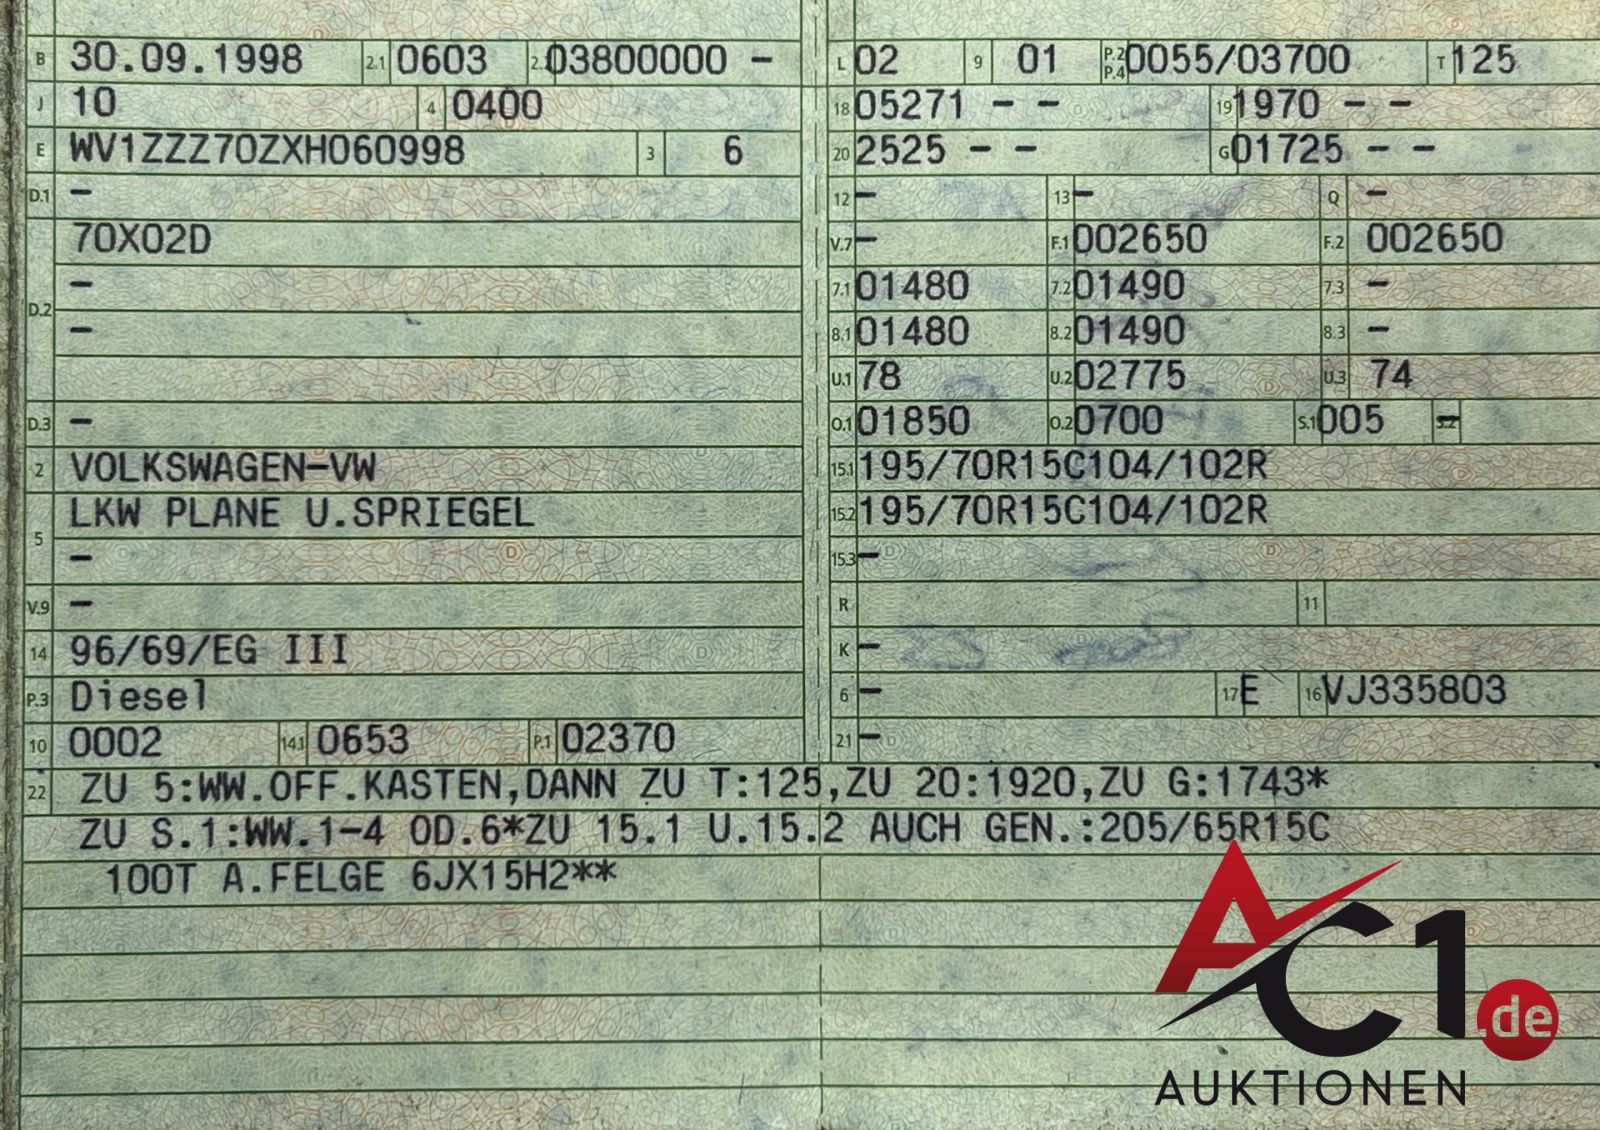 B 30.09.1998 2.1 0603 2. 03800000 -
J 10 4 0400
E WV1ZZZ70ZXH060998 3 6
D.1 -
70X02D
D.2 -
-
D.3 -
2 VOLKSWAGEN-VW
5 LKW PLANE U.SPRIEGEL
-
V.9 -
14 96/69/EG III
P.3 Diesel
10 0002 14.1 0653 P.1 02370
L 02 9 01 P.2 P.4 0055/03700 T 125
18 05271 - - 19 1970 - -
20 2525 - - G 01725 - -
12 - 13 - Q -
V.7 - F.1 002650 F.2 002650
7.1 01480 7.2 01490 7.3 -
8.1 01480 8.2 01490 8.3 -
U.1 78 U.2 02775 U.3 74
O.1 01850 O.2 0700 S.1 005 S.2 -
15.1 195/70R15C104/102R
15.2 195/70R15C104/102R
15.3 -
R 11
K -
6 - 17 E 16 VJ335803
21 -
22 ZU 5:WW.OFF.KASTEN,DANN ZU T:125,ZU 20:1920,ZU G:1743*
ZU S.1:WW.1-4 OD.6*ZU 15.1 U.15.2 AUCH GEN.:205/65R15C
100T A.FELGE 6JX15H2**
AC1.de
AUKTIONEN